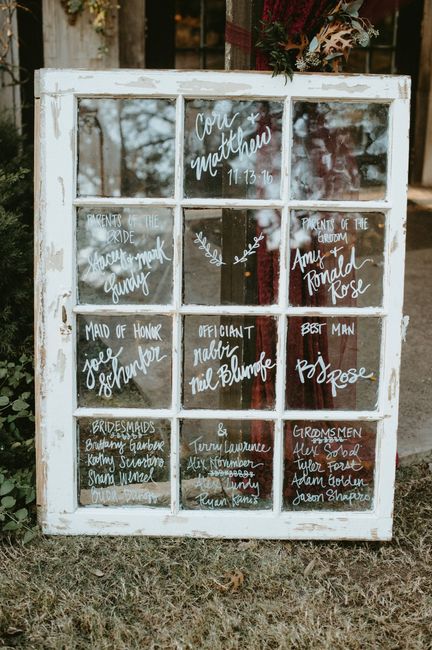 Cori +
Matthew
11.13.16
PARENTS OF THE
BRIDE
Stacey + Mark
Zundy
PARENTS OF THE
GROOM
Amy +
Ronald
Rose
MAID OF HONOR
Joee
Schenker
OFFICIANT
Rabbi
Neil Blumofe
BEST MAN
BJ
Rose
BRIDESMAIDS
Brittany Garber
Shara Wenzel
&
Terry Lawrence
Alex November
Alex Zundy
Ryan
GROOMSMEN
Alex Sobol
Tyler Forst
Adam Golden
Jason Shapiro